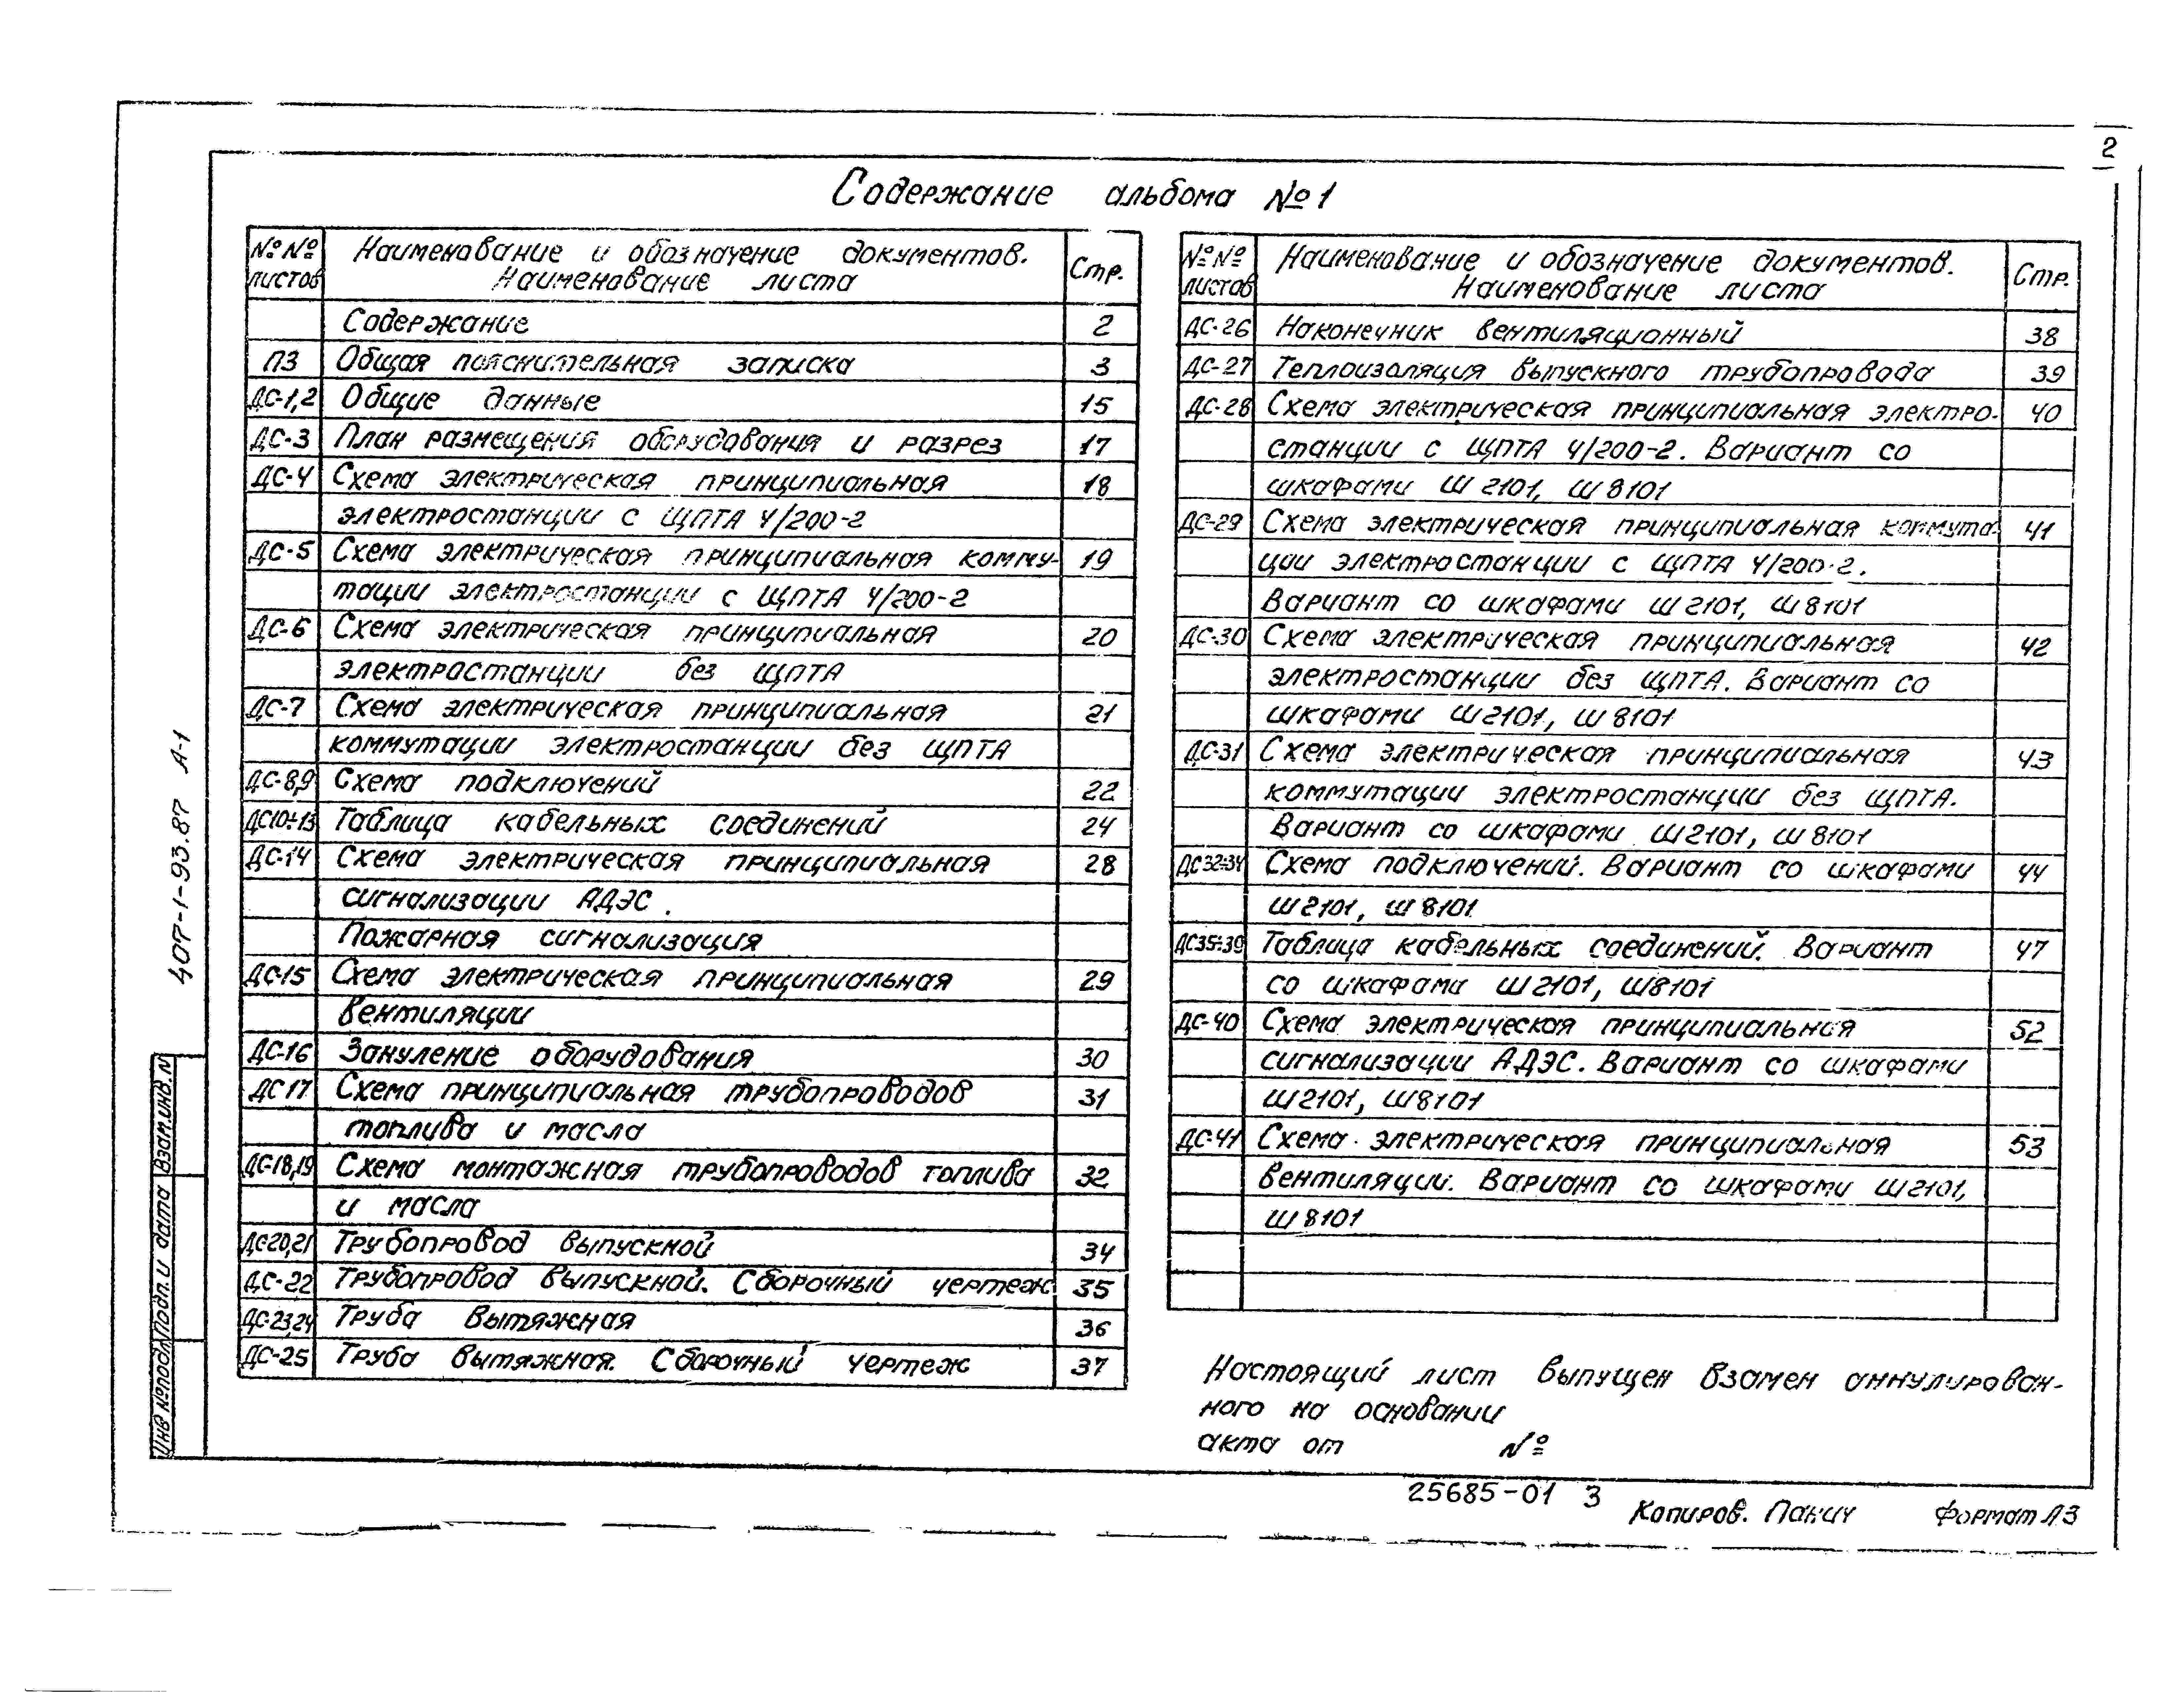 2
Содержание альбома №1
№№ листов
Наименование и обозначение документов. Наименование листа
Стр.
Содержание 2
ПЗ Общая пояснительная записка 3
ДС-1,2 Общие данные 15
ДС-3 План размещения оборудования и разрез 17
ДС-4 Схема электрическая принципиальная 18
электростанции с ЩПТА 4/200-2
ДС-5 Схема электрическая принципиальная комму- 19
тации электростанции с ЩПТА 4/200-2
ДС-6 Схема электрическая принципиальная 20
электростанции без ЩПТА
ДС-7 Схема электрическая принципиальная 21
коммутации электростанции без ЩПТА
ДС-8,9 Схема подключений 22
ДС10÷13 Таблица кабельных соединений 24
ДС-14 Схема электрическая принципиальная 28
сигнализации АДЭС.
Пожарная сигнализация
ДС-15 Схема электрическая принципиальная 29
вентиляции
ДС-16 Зануление оборудования 30
ДС 17 Схема принципиальная трубопроводов 31
топлива и масла
ДС-18,19 Схема монтажная трубопроводов топлива 32
и масла
ДС-20,21 Трубопровод выпускной 34
ДС-22 Трубопровод выпускной. Сборочный чертеж 35
ДС-23,24 Труба вытяжная 36
ДС-25 Труба вытяжная. Сборочный чертеж 37
№№ листов
Наименование и обозначение документов. Наименование листа
Стр.
ДС-26 Наконечник вентиляционный 38
ДС-27 Теплоизоляция выпускного трубопровода 39
ДС-28 Схема электрическая принципиальная электро- 40
станции с ЩПТА 4/200-2. Вариант со
шкафами Ш 2101, Ш 8101
ДС-29 Схема электрическая принципиальная коммута- 41
ции электростанции с ЩПТА 4/200-2.
Вариант со шкафами Ш 2101, Ш 8101
ДС-30 Схема электрическая принципиальная 42
электростанции без ЩПТА. Вариант со
шкафами Ш2101, Ш 8101
ДС-31 Схема электрическая принципиальная 43
коммутации электростанции без ЩПТА.
Вариант со шкафами Ш2101, Ш 8101
ДС32÷34 Схема подключений. Вариант со шкафами 44
Ш2101, Ш 8101
ДС35÷39 Таблица кабельных соединений. Вариант 47
со шкафами Ш2101, Ш8101
ДС-40 Схема электрическая принципиальная 52
сигнализации АДЭС. Вариант со шкафами
Ш2101, Ш8101
ДС-41 Схема электрическая принципиальная 53
вентиляции. Вариант со шкафами Ш2101,
Ш 8101
Настоящий лист выпущен взамен аннулирован-
ного на основании
акта от №
25685-01 3
Копиров. Панич Формат А3
407-1-93.87 А-1
Взам.инв.N
Подп.и дата
Инв Nподл